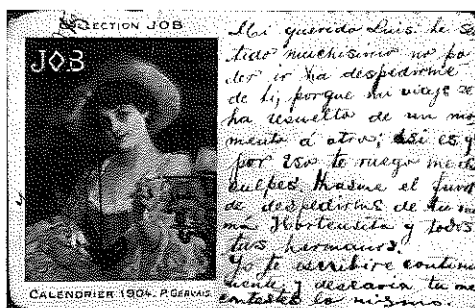 COLLECTION JOB
JOB
CALENDRIER 1904. P. GERVAIS.
Mi querido Luis: he se
tido muchisimo no po
der ir ha despedirme
de ti, porque mi viaje se
ha resuelto de un mo
mento á otro; así es q
por eso te ruego me
culpes. Hasme el favor
de despedirme de tu ma
má Hortensita y todos
tus hermanos.
Yo te escribiré continua
mente, y desearía tu me
contestes lo mismo.